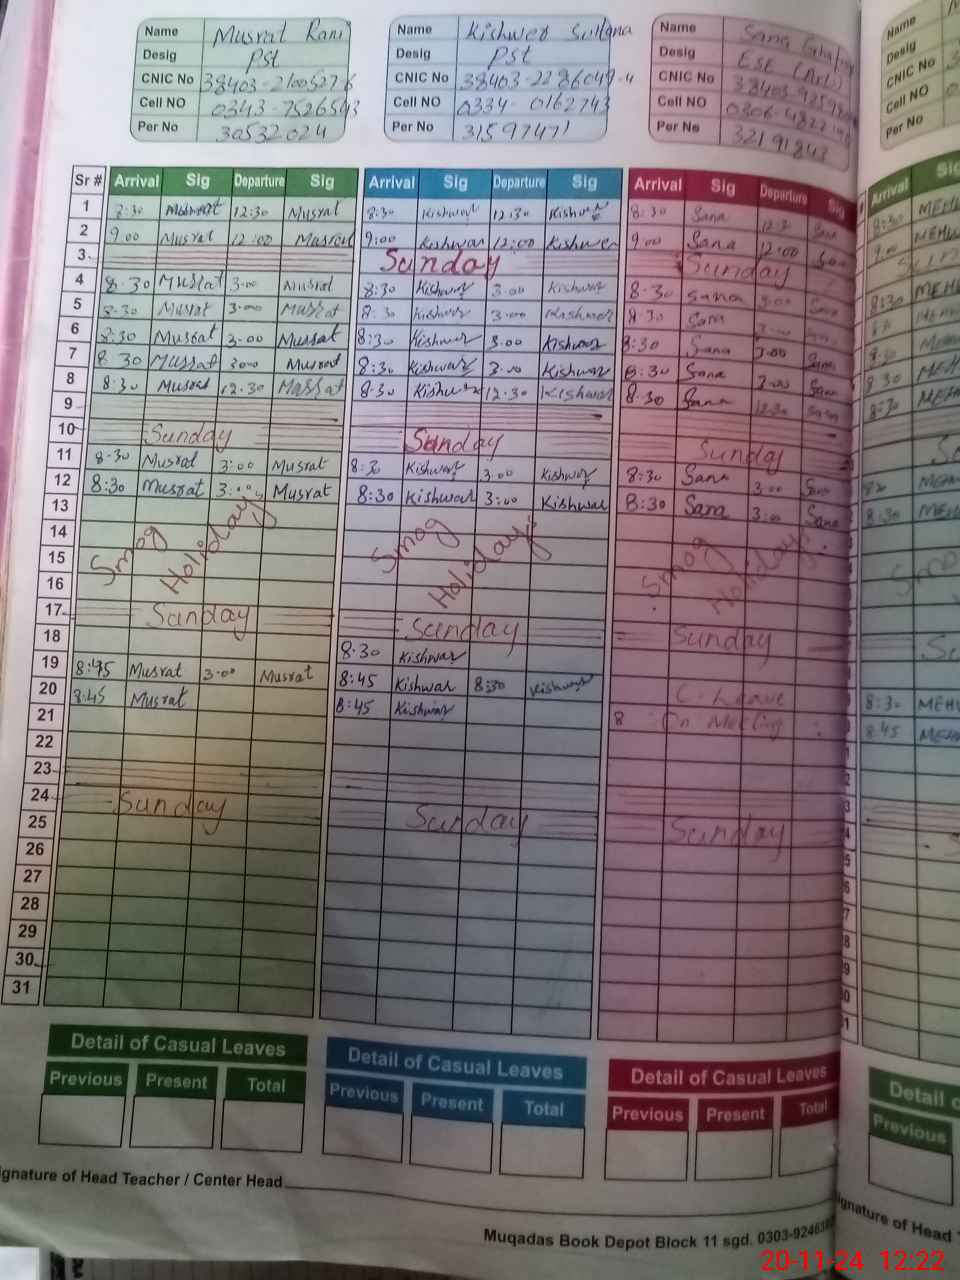 Name Musrat Rani
Desig PST
CNIC No 38403-2100527-6
Cell NO 0343-7526543
Per No 30532024
Name Kishwer Sultana
Desig PST
CNIC No 38403-2286049-4
Cell NO 0334-0162743
Per No 31597471
Name Sana
Desig ESE (Art)
CNIC No
Cell NO 0306-4822
Per No 32191843
Name
Desig
CNIC No
Cell NO
Per No
Sr # Arrival Sig Departure Sig Arrival Sig Departure Sig Arrival Sig Departure Sig Arrival
1 8:30 Musrat 12:30 Musrat 8:30 Kishwar 12:30 Kishwar 8:30 Sana Sana 8:30
2 9:00 Musrat 12:00 Musrat 9:00 Kishwar 12:00 Kishwer 9:00 Sana 12:00 Sana 9:00
3 Sunday Sunday
4 8:30 Musrat 3:00 Musrat 8:30 Kishwar 3:00 Kishwar 8:30 Sana 3:00 Sana 8:30
5 8:30 Musrat 3:00 Musrat 8:30 Kishwar 3:00 Kishwar 8:30 Sana
6 8:30 Musrat 3:00 Musrat 8:30 Kishwar 3:00 Kishwar 8:30 Sana 3:00 Sana 8:30
7 8:30 Musrat 3:00 Musrat 8:30 Kishwar 3:00 Kishwar 8:30 Sana 3:00 Sana 8:30
8 8:30 Musrat 12:30 Musrat 8:30 Kishwar 12:30 Kishwar 8:30 Sana 12:30 Sana 8:30
9
10 Sunday Sunday Sunday
11 8:30 Musrat 3:00 Musrat 8:30 Kishwar 3:00 Kishwar 8:30 Sana 3:00 Sana
12 8:30 Musrat 3:00 Musrat 8:30 Kishwar 3:00 Kishwar 8:30 Sana 3:00 Sana 8:30
13
14
15 Smog Holiday Smog Holidays Smog Holidays
16
17 Sunday Sunday Sunday
18 8:30 Kishwar
19 8:45 Musrat 3:00 Musrat 8:45 Kishwar 8:30 Kishwar C. Leave 8:30
20 8:45 Musrat 8:45 Kishwar 8 On Meeting 8:45
21
22
23
24 Sunday Sunday Sunday
25
26
27
28
29
30
31
Detail of Casual Leaves Detail of Casual Leaves Detail of Casual Leaves
Previous Present Total Previous Present Total Previous Present Total Previous
ignature of Head Teacher / Center Head
Muqadas Book Depot Block 11 sgd.
20-11-24 12:22